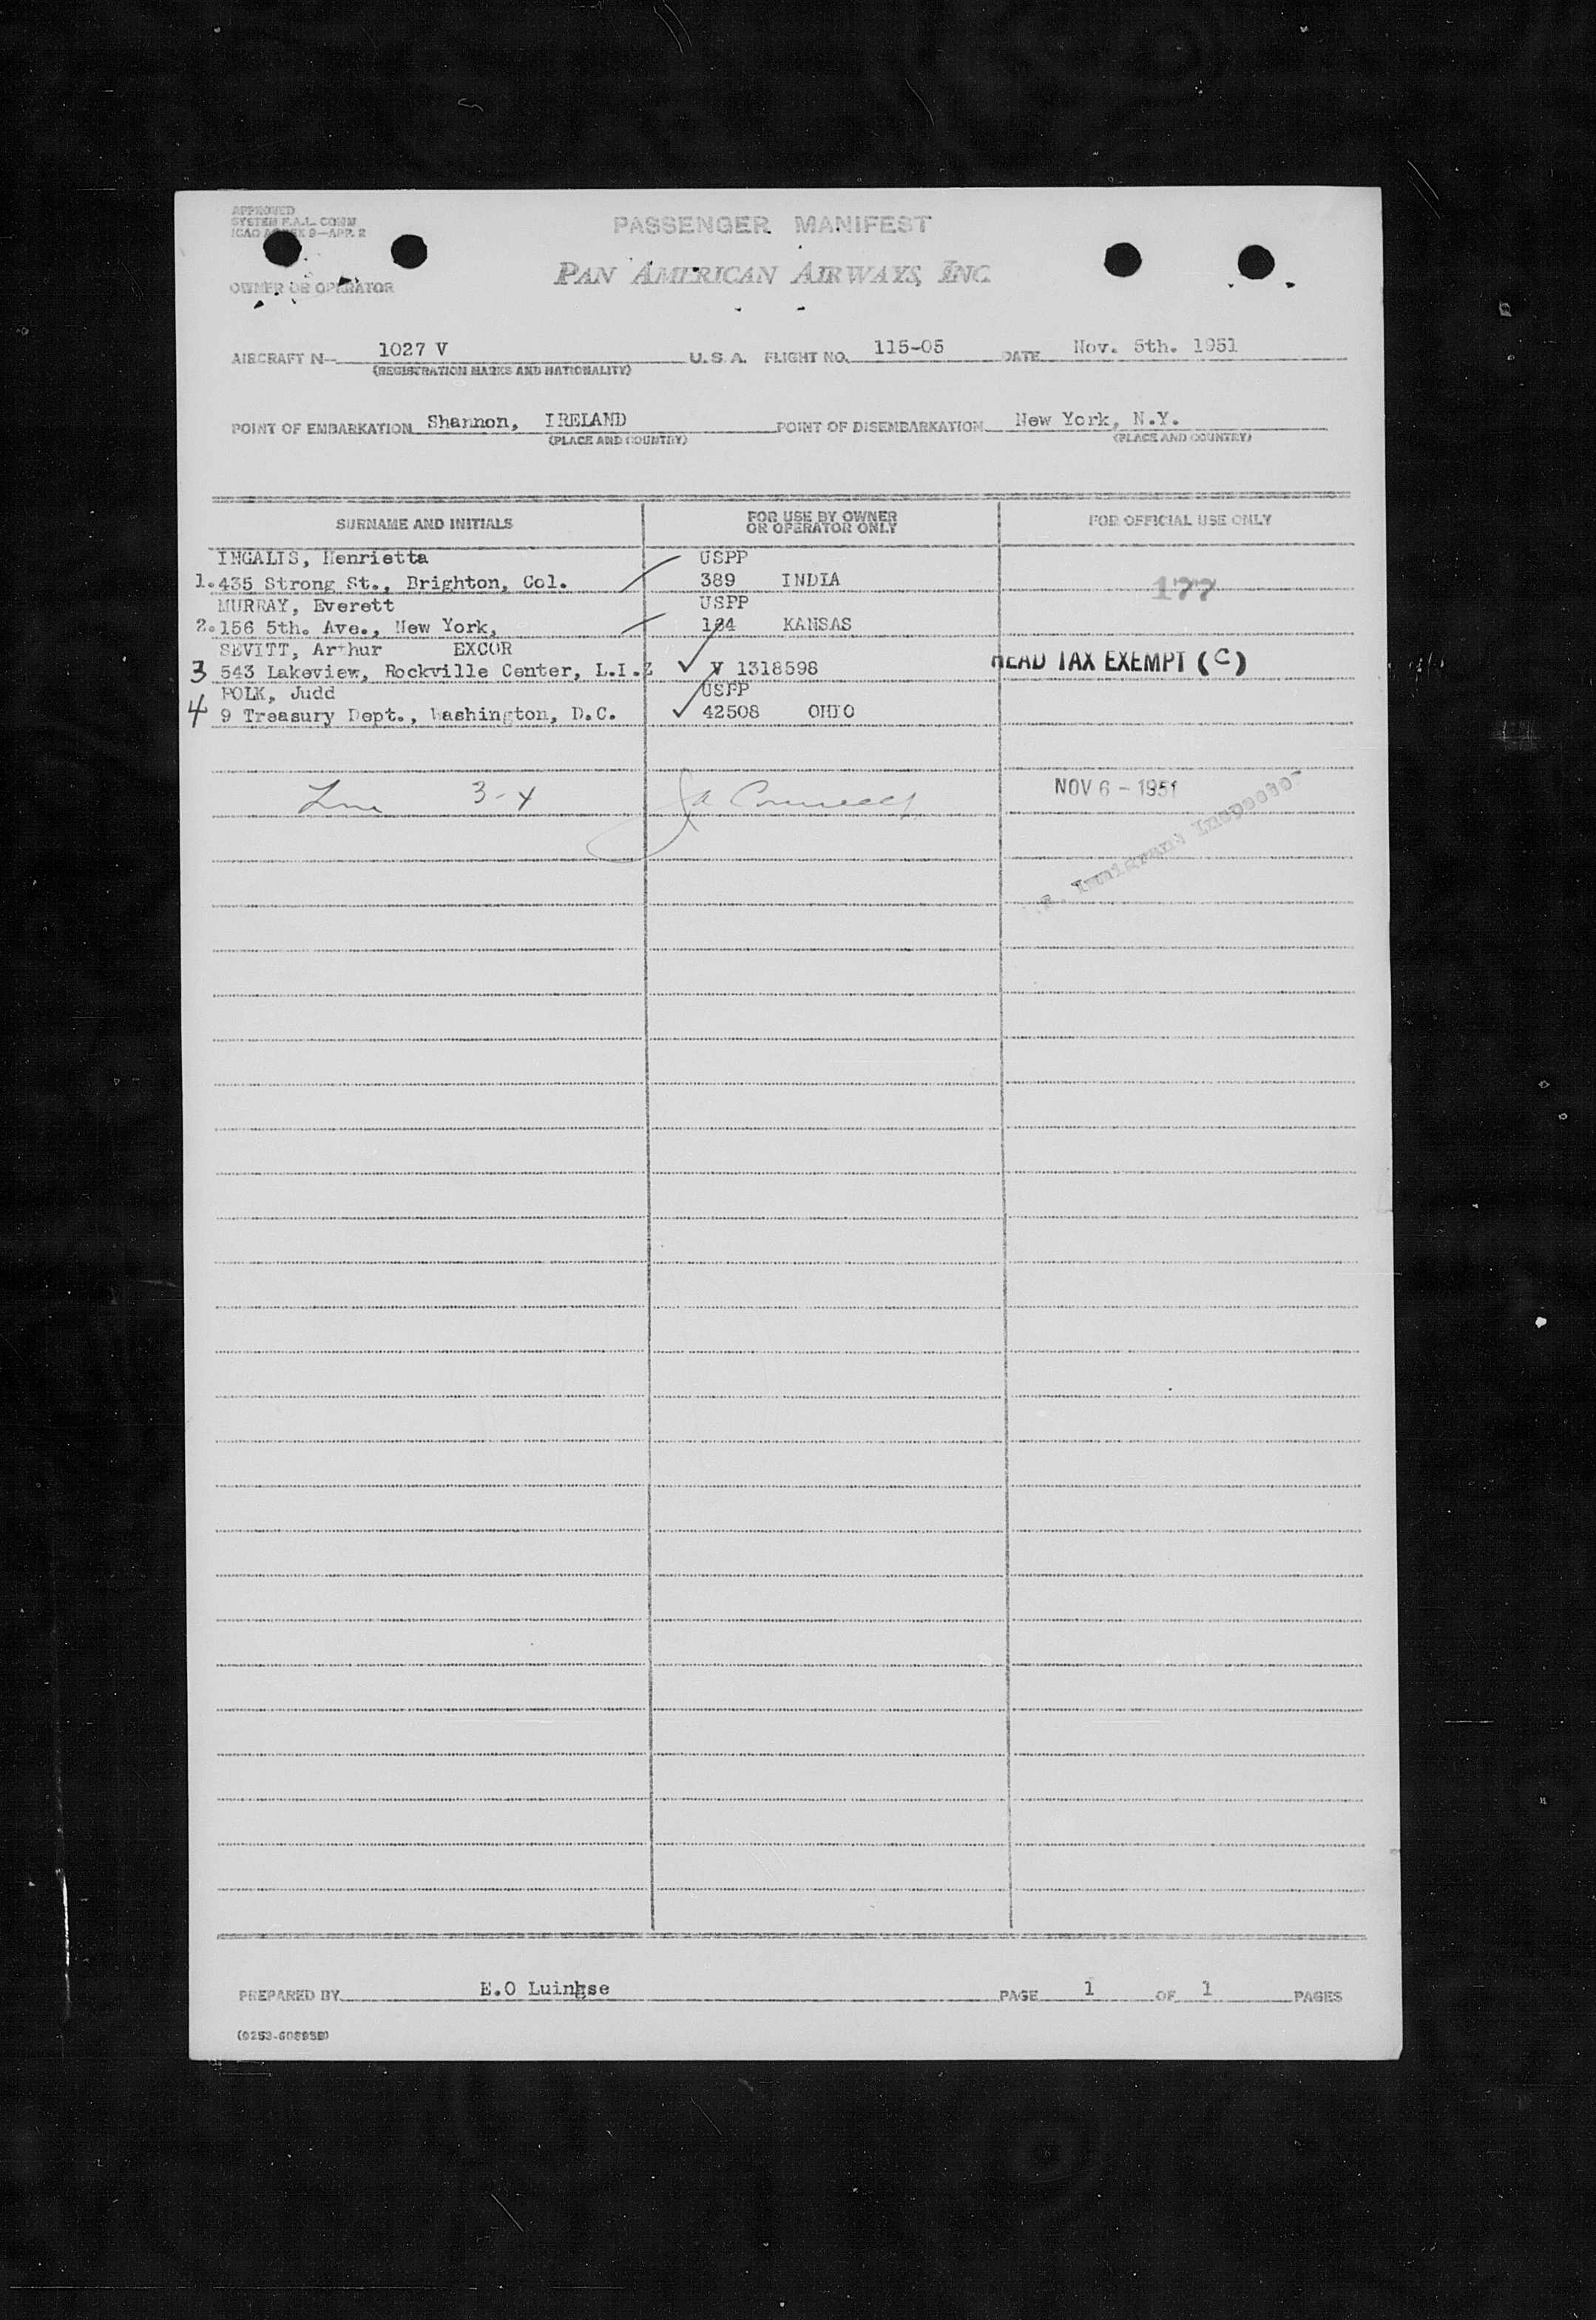 APPROVED
SYSTEM F.A.L. COMM
ICAO ANNEX 9—APP. 2
PASSENGER MANIFEST
PAN AMERICAN AIRWAYS, INC.
OWNER OR OPERATOR
AIRCRAFT N— 1027 V U.S.A. FLIGHT NO. 115-05 DATE Nov. 5th. 1951
(REGISTRATION MARKS AND NATIONALITY)
POINT OF EMBARKATION Shannon, IRELAND POINT OF DISEMBARKATION New York, N.Y.
(PLACE AND COUNTRY) (PLACE AND COUNTRY)
SURNAME AND INITIALS FOR USE BY OWNER OR OPERATOR ONLY FOR OFFICIAL USE ONLY
INGALIS, Henrietta USPP
1. 435 Strong St., Brighton, Col. 389 INDIA 177
MURRAY, Everett USPP
2. 156 5th. Ave., New York, 184 KANSAS
SEVITT, Arthur EXCOR
3 543 Lakeview, Rockville Center, L.I. V 1318598 HEAD TAX EXEMPT (C)
POLK, Judd USPP
4 9 Treasury Dept., Washington, D.C. 42508 OHIO
3-4 NOV 6 - 1951
Immigrant Inspector
PREPARED BY E.O PAGE 1 OF 1 PAGES